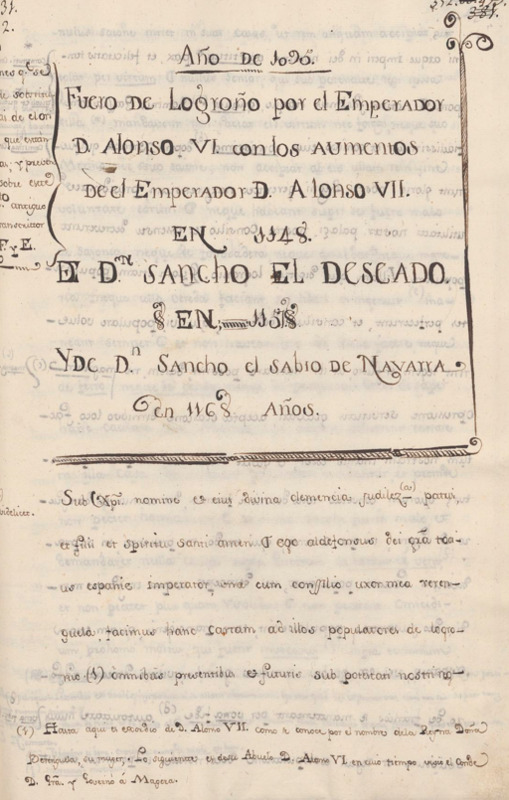 31.
2.
381.
Año DE 1095.
Fuero DE Logroño por el Emperador
D. Alonso VI. con los aumentos
de el Emperador D. Alonso VII.
EN 1148.
E D.ⁿ SANCHO EL DESEADO.
EN 1158
Y De D.ⁿ Sancho el SABIO DE Navarra
en 1168 Años.
Sub Xpi. nomine et eius divina clementia, (a) patris,
et filii et spiritus santi amen. Ego aldefonsus dei gra to-
us espanie imperator una cum consilio uxor mea veren-
guela facimus hanc cartam ad illos populatores de logro-
nio (1) omnibus presentibus et futuris sub potestati nostri
(1) Hasta aqui el exordio de D. Alonso VII. como se conoce por el nombre de la Reyna Doña
Berenguela, su muger, lo siguiente es de su Abuelo D. Alonso VI. en cuio tiempo el Conde
D. Gra. y Governó á Nagera.